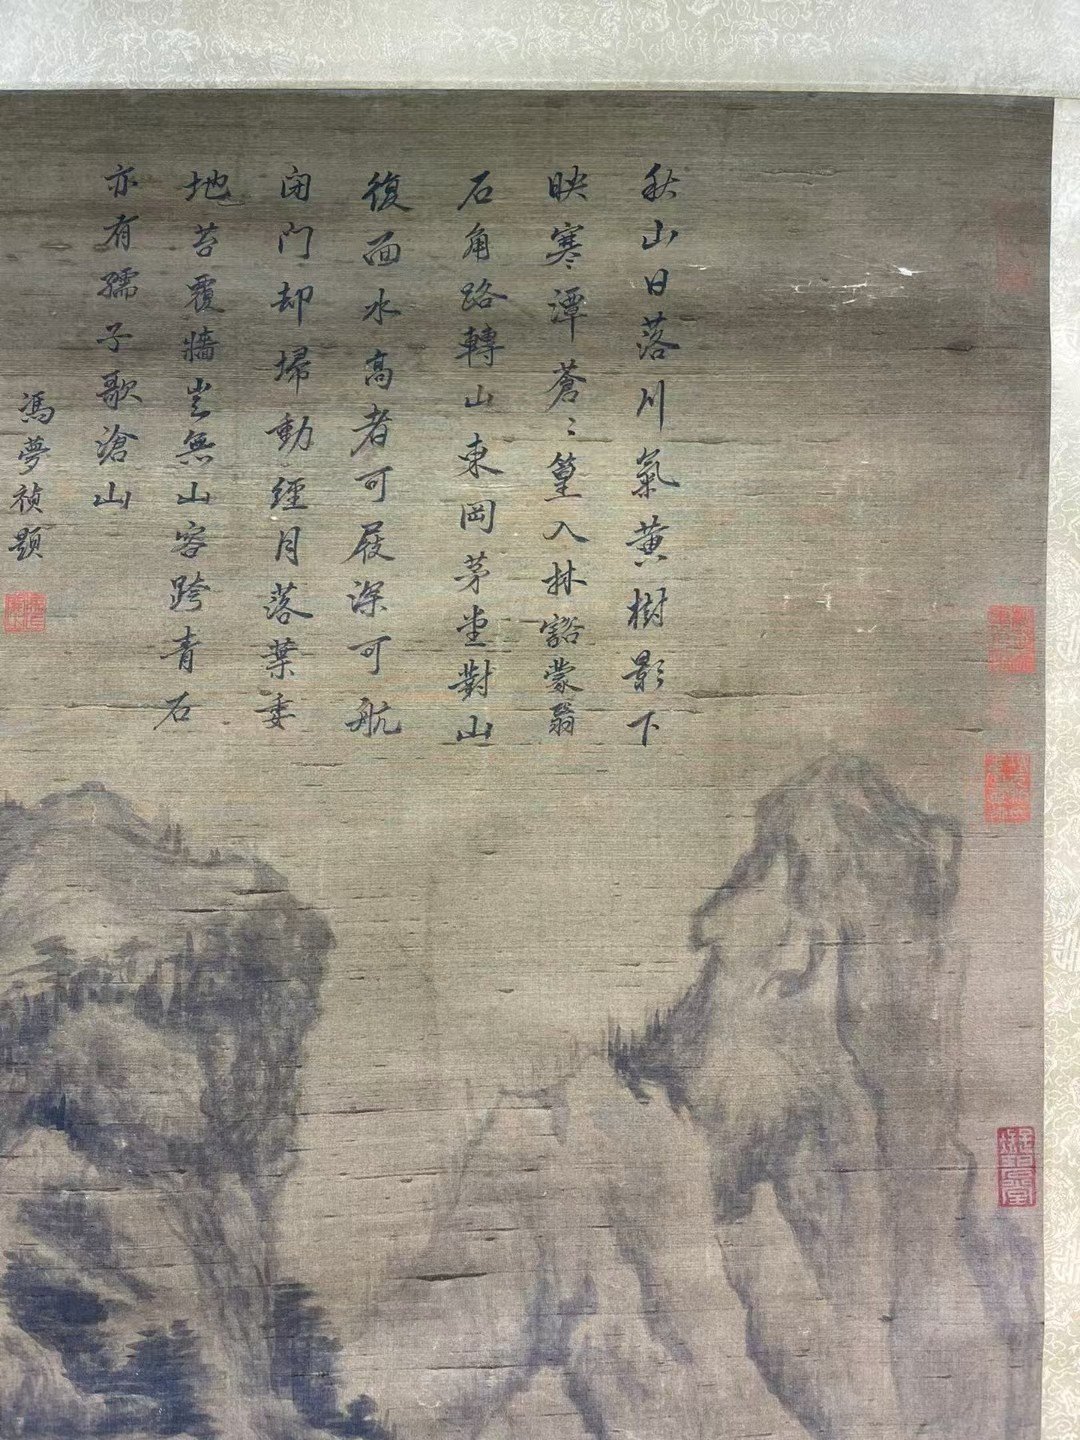 秋山日落川氣黄樹影下
映寒潭蒼〻篁入林豁蒙翳
石角路轉山東岡茅堂對山
復面水高者可屐深可航
閉門却埽動經月落葉委
地苔覆牆豈無山容跨青石
亦有孺子歌滄山
馮夢禎題